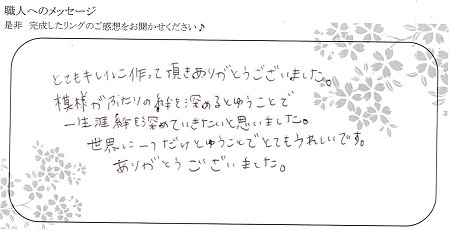 職人へのメッセージ
是非 完成したリングのご感想をお聞かせください♪
とてもキレイに作って頂きありがとうございました。
模様がふたりの絆を深めるとゆうことで
一生涯絆を深めていきたいと思いました。
世界に一つだけとゆうことでとてもうれしいです。
ありがとうございました。